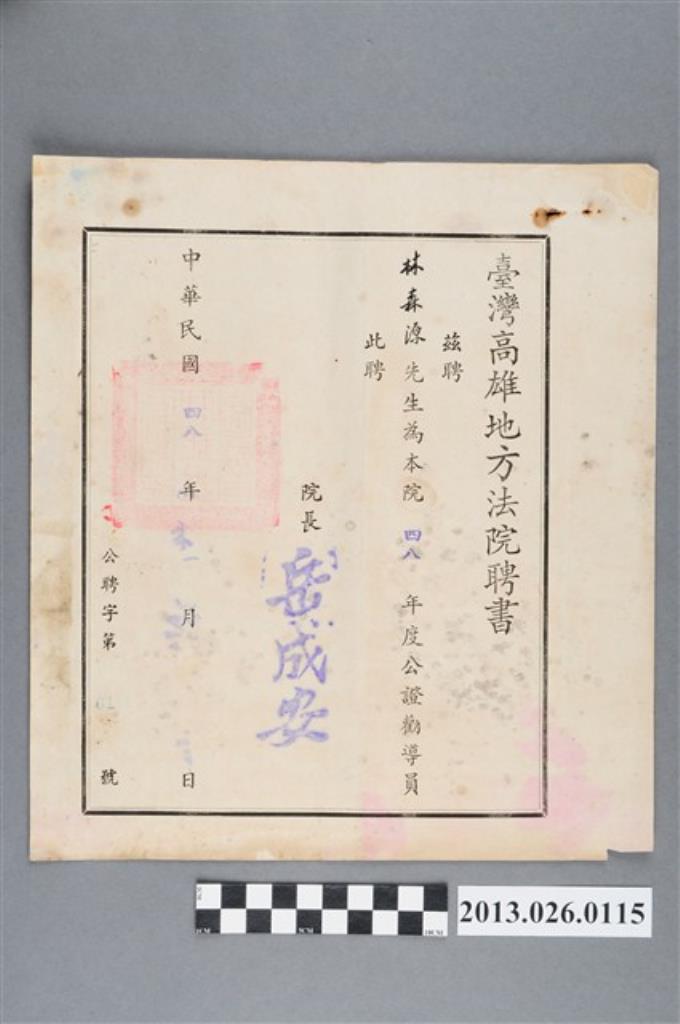 臺灣高雄地方法院聘書
茲聘
林森源先生為本院四八年度公證勸導員
此聘
院長
岳成安
中華民國四八年 月 日
公聘字第 號
2013.026.0115